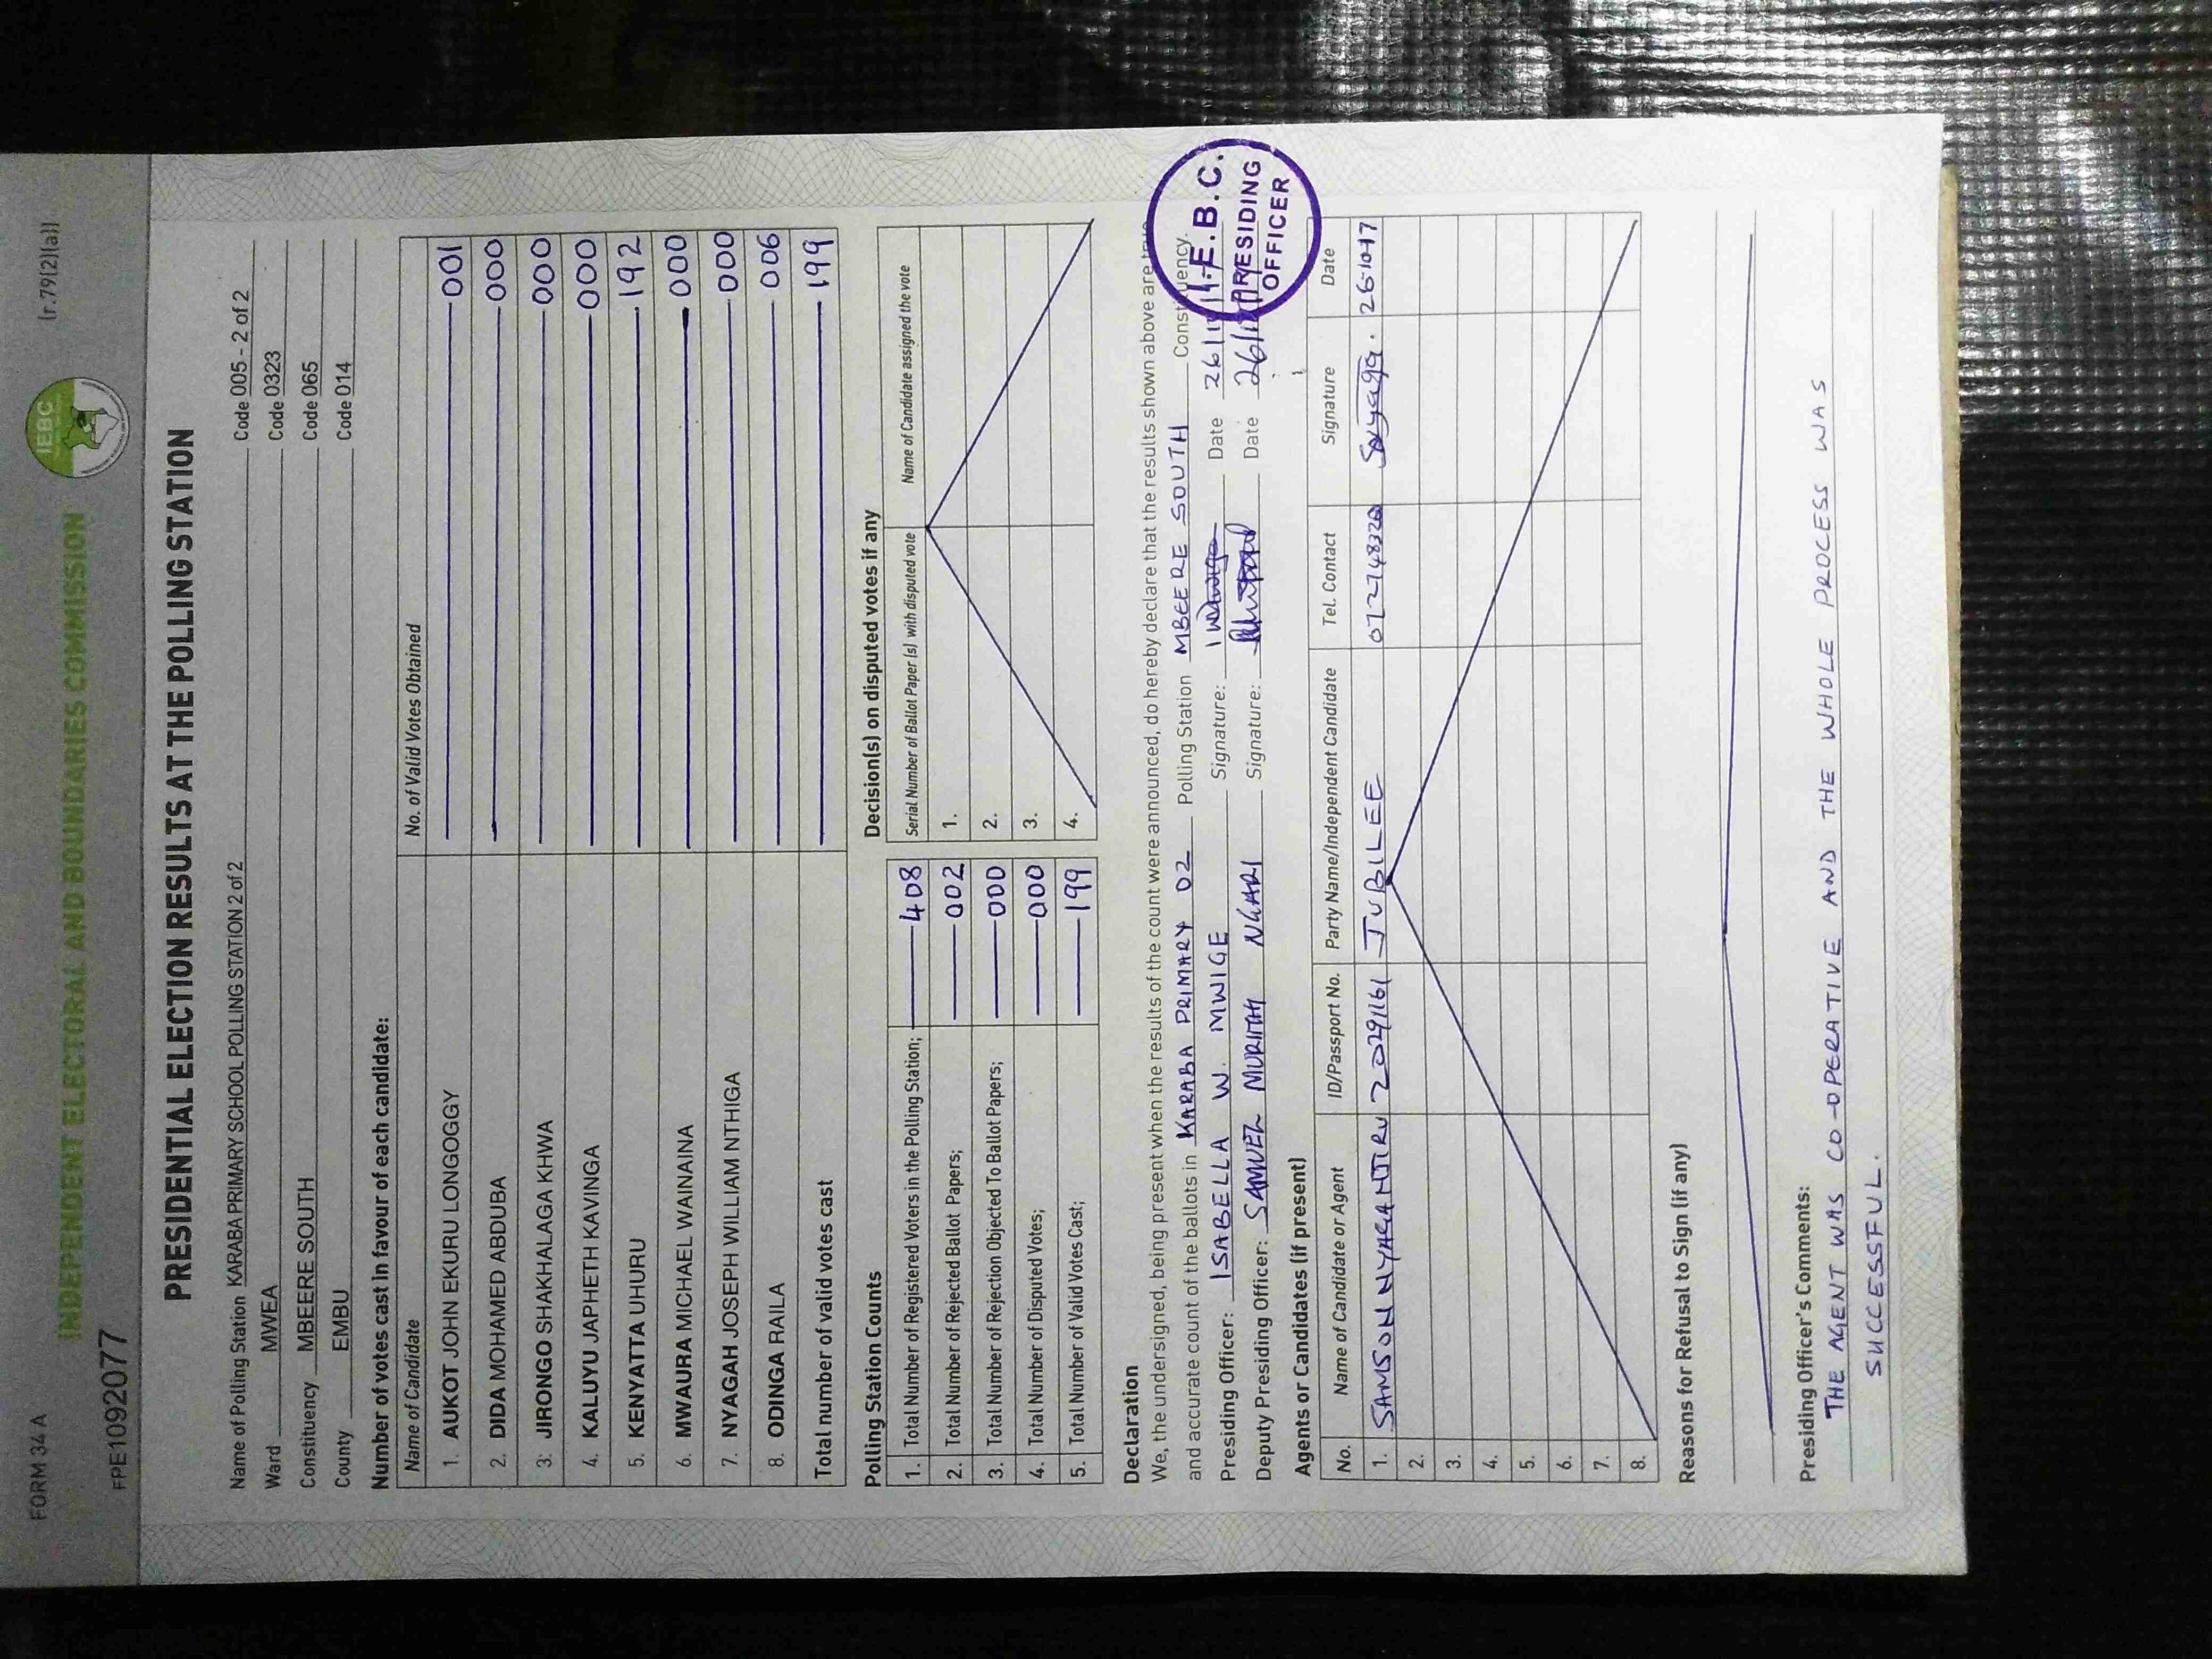 FORM 34 A
(r.79(2)(a))
IEBC
INDEPENDENT ELECTORAL AND BOUNDARIES COMMISSION
FPE1092077
PRESIDENTIAL ELECTION RESULTS AT THE POLLING STATION
Name of Polling Station KARABA PRIMARY SCHOOL POLLING STATION 2 of 2 Code 005 - 2 of 2
Ward MWEA Code 0323
Constituency MBEERE SOUTH Code 065
County EMBU Code 014
Number of votes cast in favour of each candidate:
Name of Candidate No. of Valid Votes Obtained
1. AUKOT JOHN EKURU LONGOGGY 001
2. DIDA MOHAMED ABDUBA 000
3: JIRONGO SHAKHALAGA KHWA 000
4. KALUYU JAPHETH KAVINGA 000
5. KENYATTA UHURU 192
6. MWAURA MICHAEL WAINAINA 000
7. NYAGAH JOSEPH WILLIAM NTHIGA 000
8. ODINGA RAILA 006
Total number of valid votes cast 199
Polling Station Counts
1. Total Number of Registered Voters in the Polling Station; 408
2. Total Number of Rejected Ballot Papers; 002
3. Total Number of Rejection Objected To Ballot Papers; 000
4. Total Number of Disputed Votes; 000
5. Total Number of Valid Votes Cast; 199
Decision(s) on disputed votes if any
Serial Number of Ballot Paper (s) with disputed vote Name of Candidate assigned the vote
1.
2.
3.
4.
Declaration
We, the undersigned, being present when the results of the count were announced, do hereby declare that the results shown above are true
and accurate count of the ballots in KARABA PRIMARY 02 Polling Station MBEERE SOUTH Constituency.
Presiding Officer: ISABELLA W. MWIGE Signature: Date
Deputy Presiding Officer: SAMUEL MURITHI NGARI Signature: Date
I.E.B.C.
PRESIDING
OFFICER
Agents or Candidates (if present)
No. Name of Candidate or Agent ID/Passport No. Party Name/Independent Candidate Tel. Contact Signature Date
1. SAMSON NYAGA NJIRU 20291161 JUBILEE
2.
3.
4.
5.
6.
7.
8.
Reasons for Refusal to Sign (if any)
Presiding Officer's Comments:
THE AGENT WAS CO-OPERATIVE AND THE WHOLE PROCESS WAS
SUCCESSFUL.